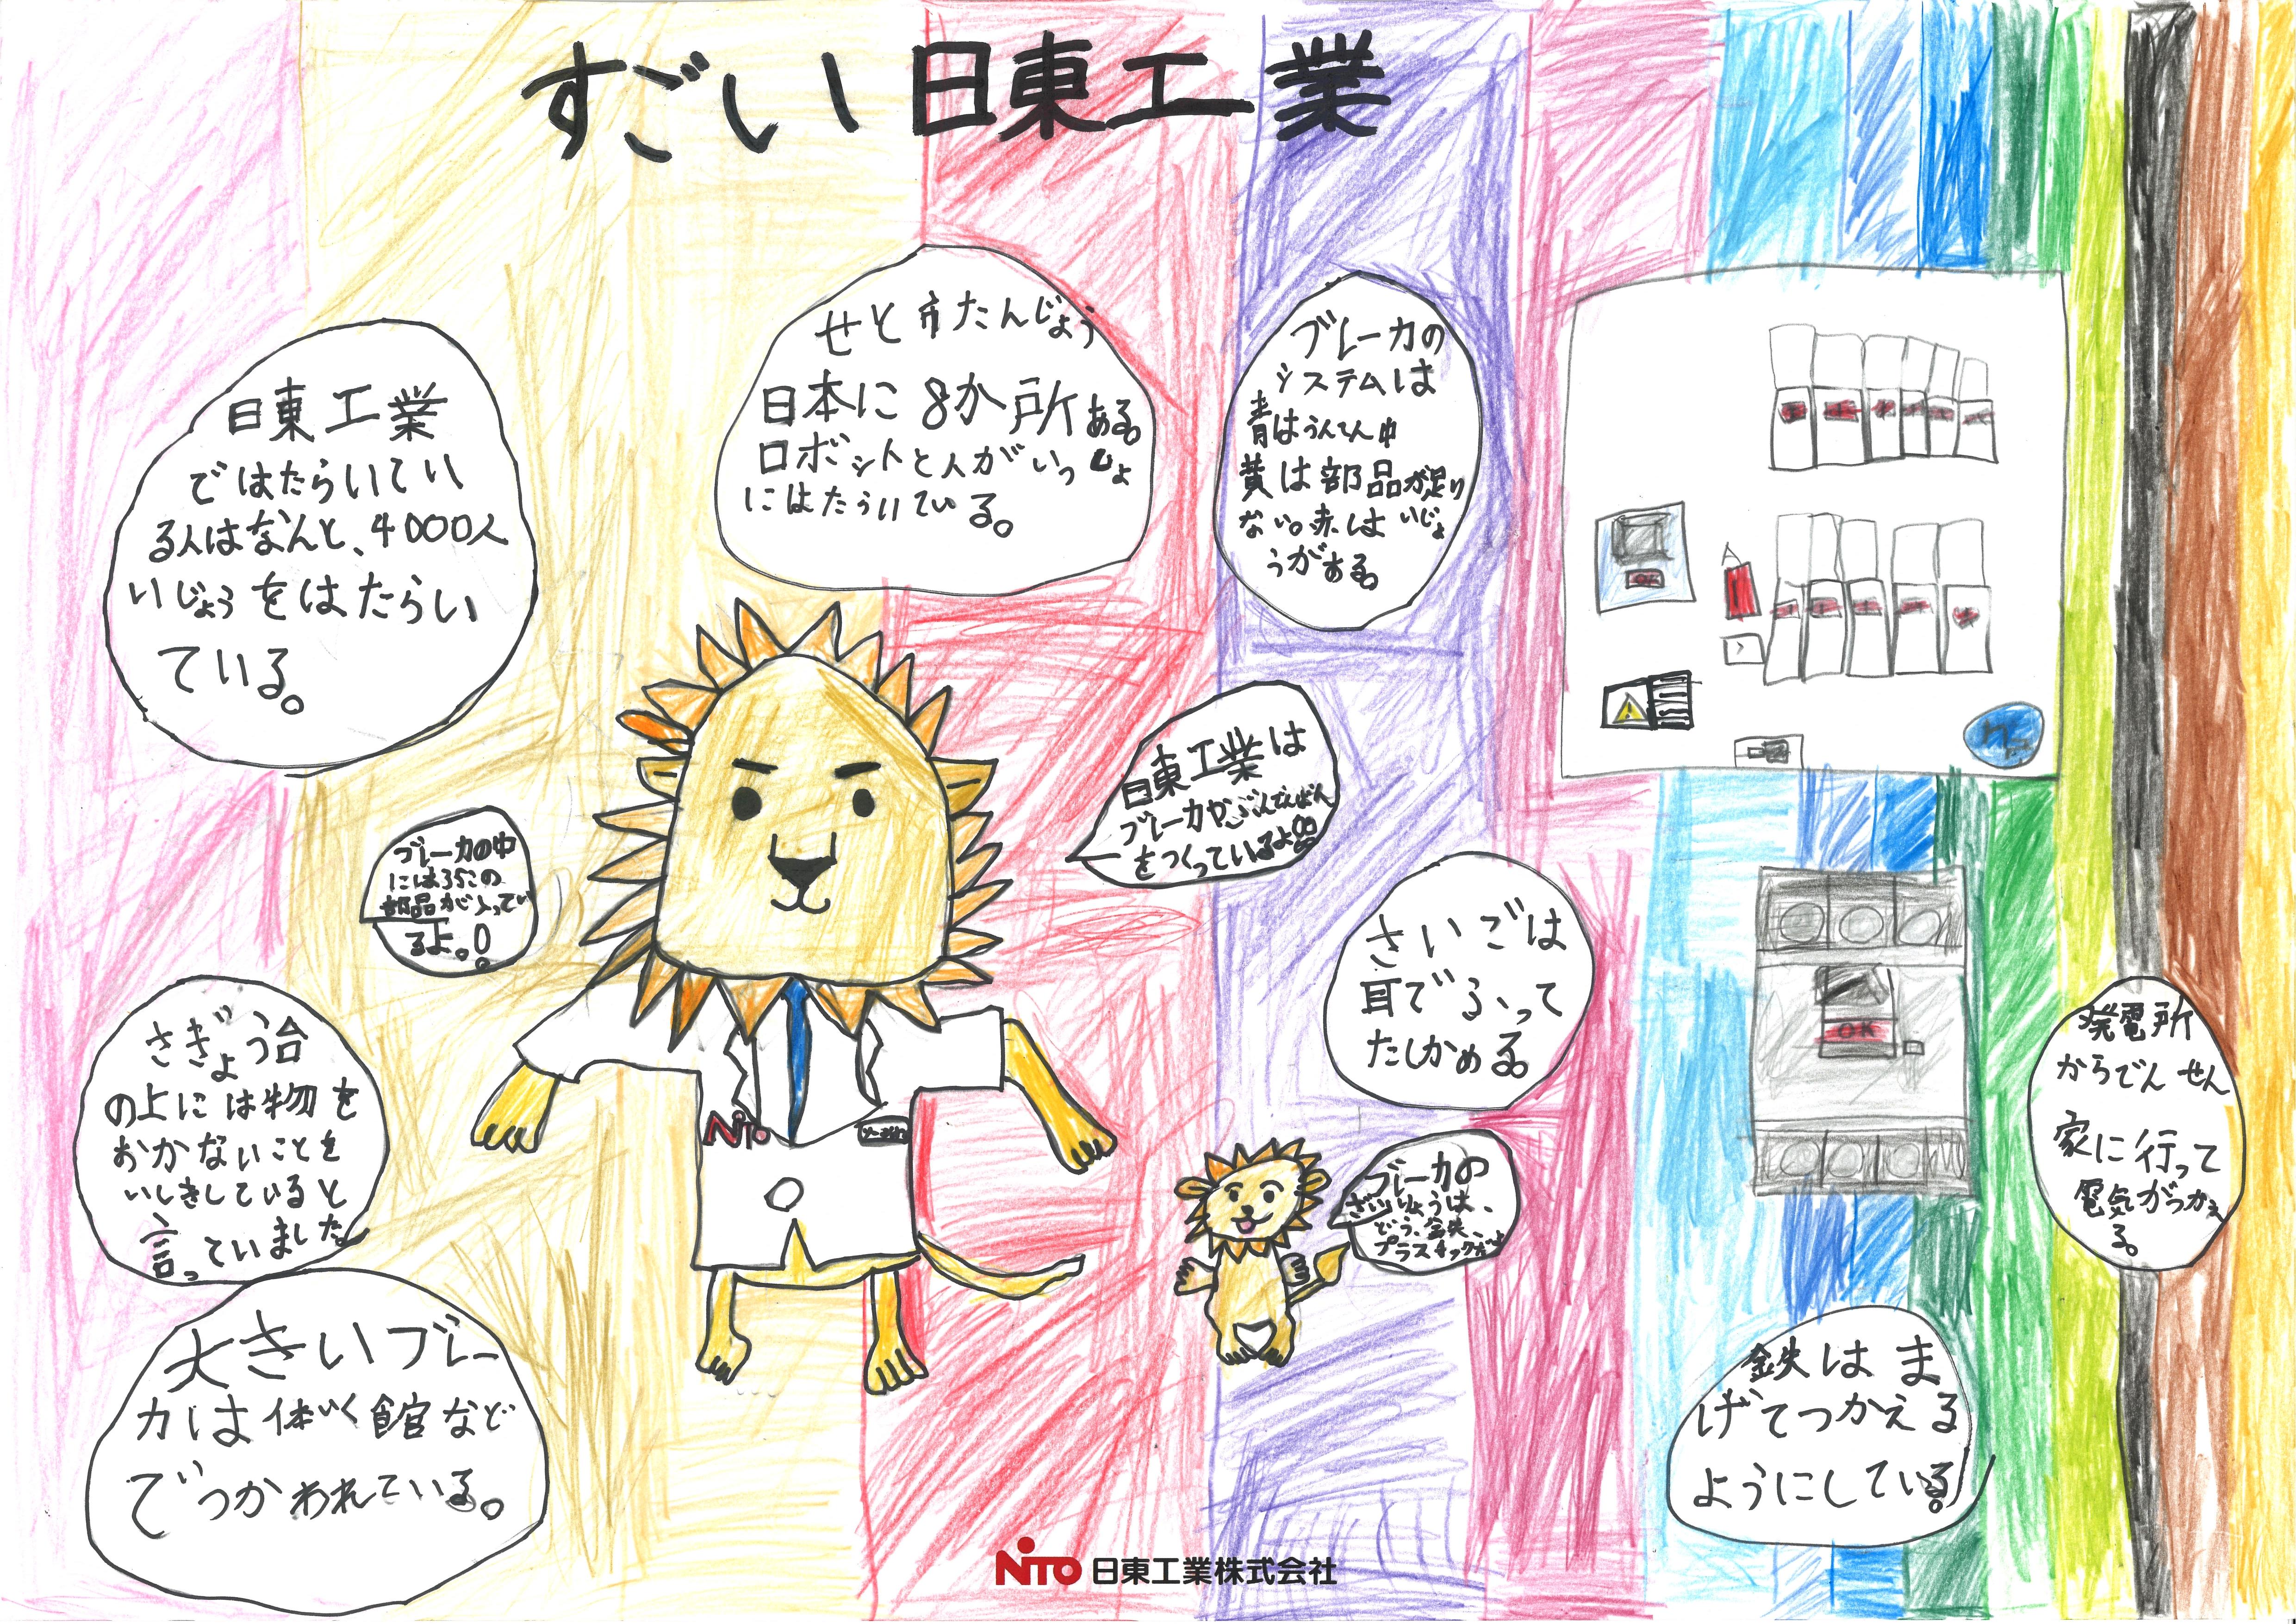 すごい日東工業
日東工業
ではたらいてい
る人はなんと、4000人
いじょうをはたらい
ている。
せと市たんじょう
日本に8か所ある。
ロボットと人がいっしょ
にはたらいている。
ブレーカの
システムは
青はうんてん中
黄は部品が足り
ない。赤はいじょ
うがある。
日東工業は
ブレーカやぶんでんばん
をつくっているよ!!
ブレーカの中
には35この
部品が入ってい
るよ。!
さいごは
耳でふって
たしかめる。
さぎょう台
の上には物を
おかないことを
いしきしていると
言っていました。
NiTO
OK
ブレーカの
ざいりょうは、
どう、鉄、
プラスチックだよ
発電所
からでんせん
家に行って
電気がつかえ
る。
大きいブレー
カは体いく館など
でつかわれている。
鉄はま
げてつかえる
ようにしている。
NiTO 日東工業株式会社